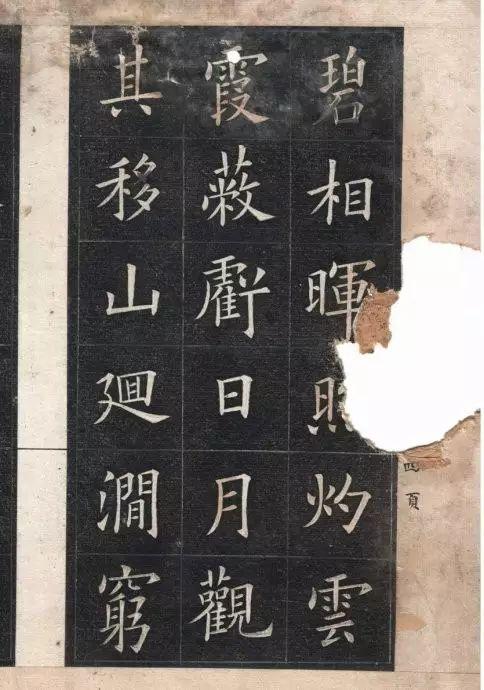 碧相暉照灼雲
霞蔽虧日月觀
其移山廻澗窮
四頁